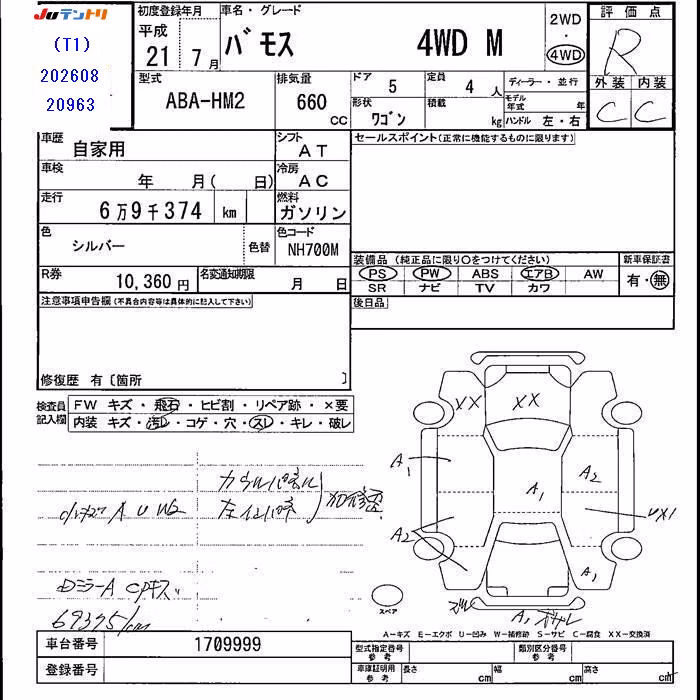 JUテントリ
(T1)
202608
20963
初度登録年月
平成
21 年 7 月
車名・グレード
バモス 4WD M
2WD
・
4WD
評価点
R
外装 内装
C C
型式
ABA-HM2
排気量
660 CC
ドア
5
定員
4 人
ディーラー・並行
形状
ワゴン
積載
kg
モデル年式 年
ハンドル 左・右
車歴
自家用
シフト
AT
セールスポイント(正常に機能するものに限ります)
車検
年 月( 日)
冷房
AC
走行
6万9千374 km
燃料
ガソリン
色
シルバー
色替
色コード
NH700M
装備品 (純正品に限り○をつけてください)
新車保証書
PS PW ABS エアB AW
有・無
SR ナビ TV カワ
R券
10,360 円
名変通知期限
月 日
後日品
注意事項申告欄(不具合内容等は具体的に記入して下さい)
修復歴 有〔箇所 〕
検査員記入欄
FW キズ・飛石・ヒビ割・リペア跡・×要
内装 キズ・汚レ・コゲ・穴・スレ・キレ・破レ
XX
XX
A1
A2
A1
A2
UX1
A1
A1
カウルパネル
A U W2
DミラーA Cpキズ
69375km
スペア
A-キズ E-エクボ U-凹み W-補修跡 S-サビ C-腐食 XX-交換済
車台番号 1709999
登録番号
型式指定番号
参考
類別区分番号
参考
車庫証明用
参考
長さ cm
幅 cm
高さ cm